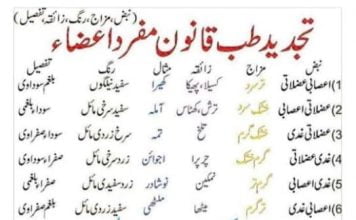 (نبض، مزاج، رنگ، زائقہ، تفصیل)
تجدید طب قانون مفرد اعضاء
نبض مزاج زائقہ مثال رنگ تفصیل
1)اعصابی عضلاتی ترسرد کسیلا، پھیکا کھیرا سفید نیلگوں بلغم سوداوی
2)عضلاتی اعصابی خشک سرد ترش، کھٹاس آملہ سفید سرخی مائل سودا، بلغمی
3)عضلاتی غدی خشک گرم تلخ تمہ سرخ زردی مائل سودا، صفراوی
4)غدی عضلاتی گرم خشک چرپرا اجوائن زرد سرخی مائل صفرا، سوداوی
5)غدی اعصابی گرم تر نمکین نوشادر زرد سفیدی مائل صفرا بلغمی
6)اعصابی غدی تر گرم میٹھا ملٹھی سفید زردی مائل بلغم صفراوی